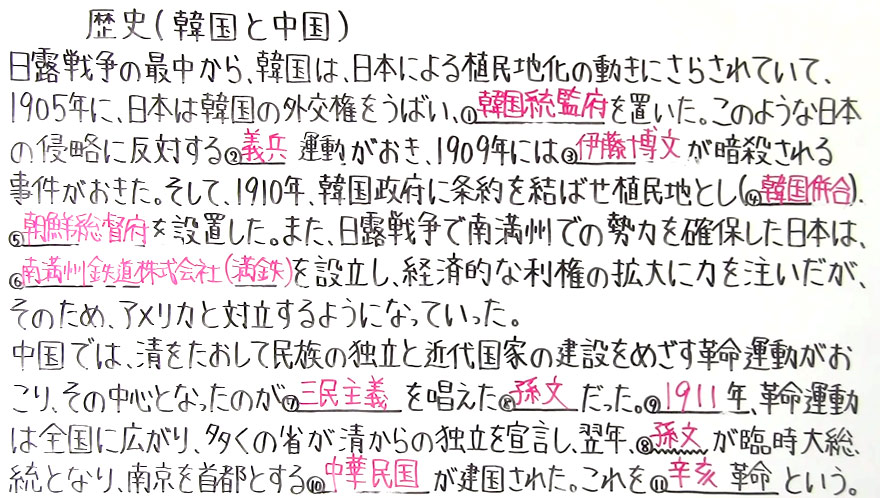 歴史(韓国と中国)
日露戦争の最中から、韓国は、日本による植民地化の動きにさらされていて、
1905年に、日本は韓国の外交権をうばい、①韓国統監府を置いた。このような日本
の侵略に反対する②義兵運動がおき、1909年には③伊藤博文が暗殺される
事件がおきた。そして、1910年、韓国政府に条約を結ばせ植民地とし(④韓国併合)、
⑤朝鮮総督府を設置した。また、日露戦争で南満州での勢力を確保した日本は、
⑥南満州鉄道株式会社(満鉄)を設立し、経済的な利権の拡大に力を注いだが、
そのため、アメリカと対立するようになっていった。
中国では、清をたおして民族の独立と近代国家の建設をめざす革命運動がお
こり、その中心となったのが⑦三民主義を唱えた⑧孫文だった。⑨1911年、革命運動
は全国に広がり、多くの省が清からの独立を宣言し、翌年、⑧孫文が臨時大総
統となり、南京を首都とする⑩中華民国が建国された。これを⑪辛亥革命という。